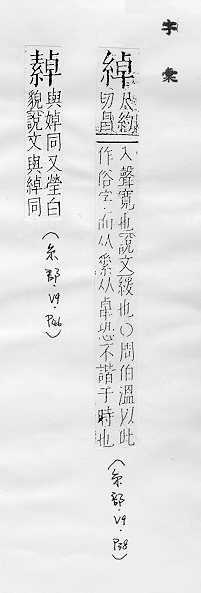 字彙
綽
尺約
切昌
入聲寬也說文緩也○周伯溫以此
作俗字·而从素从卓恐不諧于時也
(糸部·V9·P38)
繛
與婥同又瑩白
貌說文與綽同
(糸部·V9·P46)